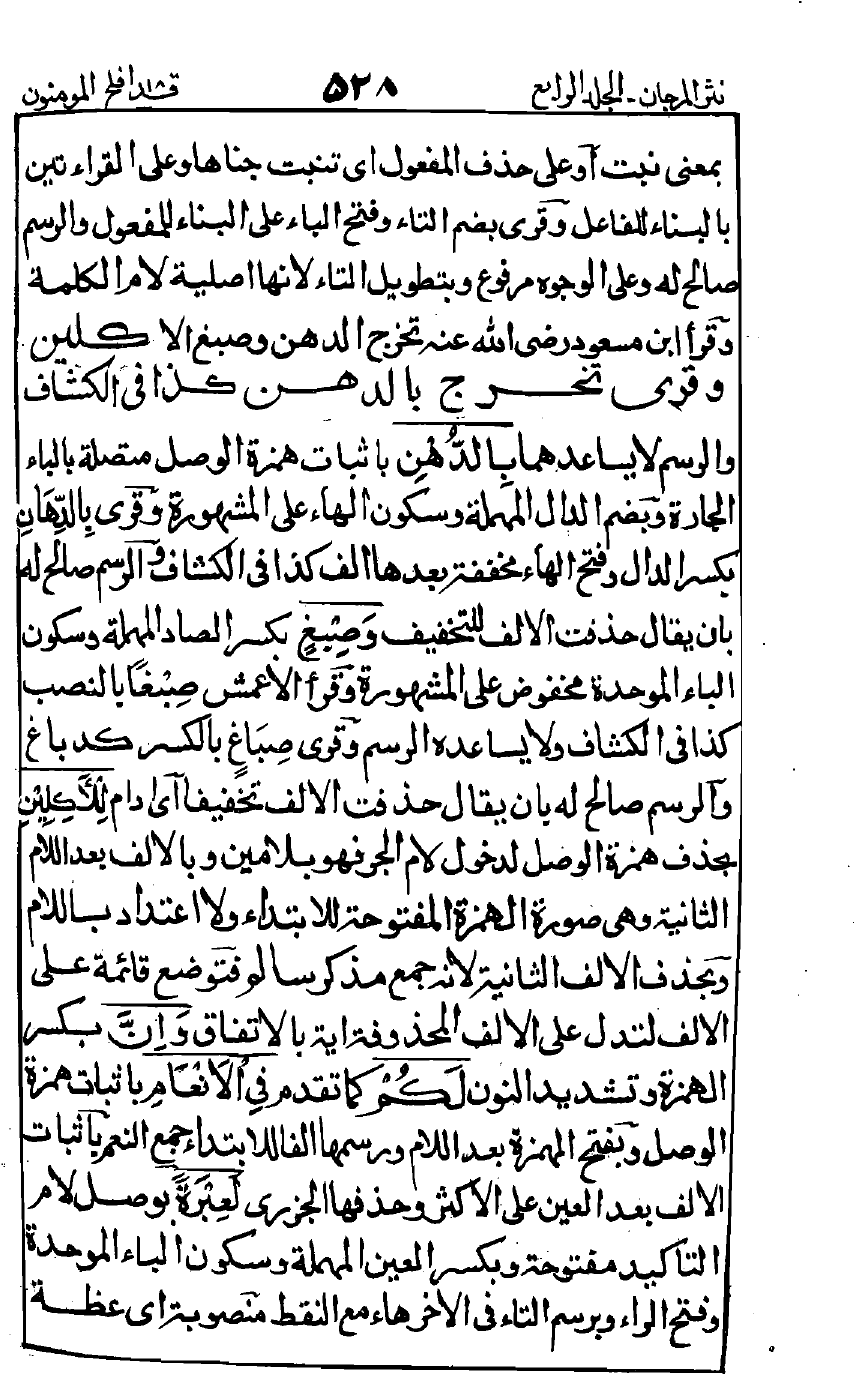 نثر المرجان - الجلد الرابع ٥٢٨ قد افلح المومنون
بمعنى نبت آو على حذف المفعول اى تنبت جناها وعلى القراءتين
بالبناء للفاعل وقرى بضم التاء وفتح الباء على البناء للمفعول والرسم
صالح له وعلى الوجوه مرفوع وبتطويل التاء لانها اصلية لام الكلمة
وقرأ ابن مسعود رضى الله عنه تخرج الدهن وصبغ الاكلين
وقرى تخرج بالدهن كذا فى الكشاف
والرسم لا يساعدهما بِالدُّهْنِ باثبات همزة الوصل متصلة بالباء
الجارة وبضم الدال المهملة وسكون الهاء على المشهورة وقرى بِالدِّهَانِ
بكسر الدال وفتح الهاء مخففة بعدها الف كذا فى الكشاف والرسم صالح له
بان يقال حذفت الالف للتخفيف وَصِبْغٍ بكسر الصاد المهملة وسكون
الباء الموحدة مخفوض على المشهورة وقرأ الأعمش صِبْغًا بالنصب
كذا فى الكشاف ولا يساعده الرسم وقرى صِبَاغٍ بالكسر كدباغ
والرسم صالح له بان يقال حذفت الالف تخفيفا آى ادام لِلْأٰكِلِيْنَ
بحذف همزة الوصل لدخول لام الجر فهو بلامين وبالالف بعد اللام
الثانية وهى صورة الهمزة المفتوحة للابتداء ولا اعتداد باللام
وبحذف الالف الثانية لانه جمع مذكر سالم فتوضع قائمة على
الالف لتدل على الالف المحذوفة اية بالاتفاق وَاِنَّ بكسر
الهمزة وتشديد النون لَكُمْ كما تقدم فِى الْاَنْعَامِ باثبات همزة
الوصل وبفتح الهمزة بعد اللام ورسمها الفا للابتداء جمع النعم باثبات
الالف بعد العين على الاكثر وحذفها الجزرى لَعِبْرَةً بوصل لام
التاكيد مفتوحة وبكسر العين المهملة وسكون الباء الموحدة
وفتح الراء وبرسم التاء فى الأخر هاء مع النقط منصوبة اى عظة